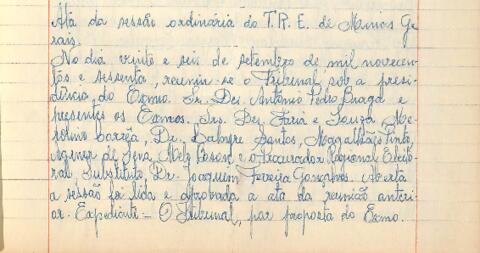 Ata da sessão ordinária do T.R.E. de Minas Ge
rais.
No dia vinte e seis de setembro de mil novecen-
tos e sessenta, reuniu-se o Tribunal sob a presi-
dência do Exmo. Sr. Des. Antônio Pedro Braga e
presentes os Exmos. Srs. Des. Faria e Souza, Me-
rolino Corrêa, Dr. Santos, Magalhães Pinto,
de Sena, e o Procurador Regional Eleito-
ral, Substituto, Dr. Joaquim Ferreira Gonçalves. Aberta
a sessão foi lida e aprovada a ata da reunião anteri-
or. Expediente - O Tribunal, por proposta do Exmo.